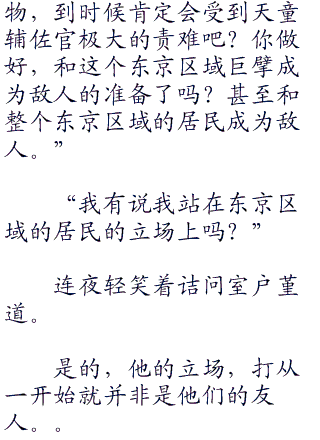 物，到时候肯定会受到天童
辅佐官极大的责难吧？你做
好，和这个东京区域巨擘成
为敌人的准备了吗？甚至和
整个东京区域的居民成为敌
人。”
“我有说我站在东京区
域的居民的立场上吗？”
连夜轻笑着诘问室户菫
道。
是的，他的立场，打从
一开始就并非是他们的友
人。。